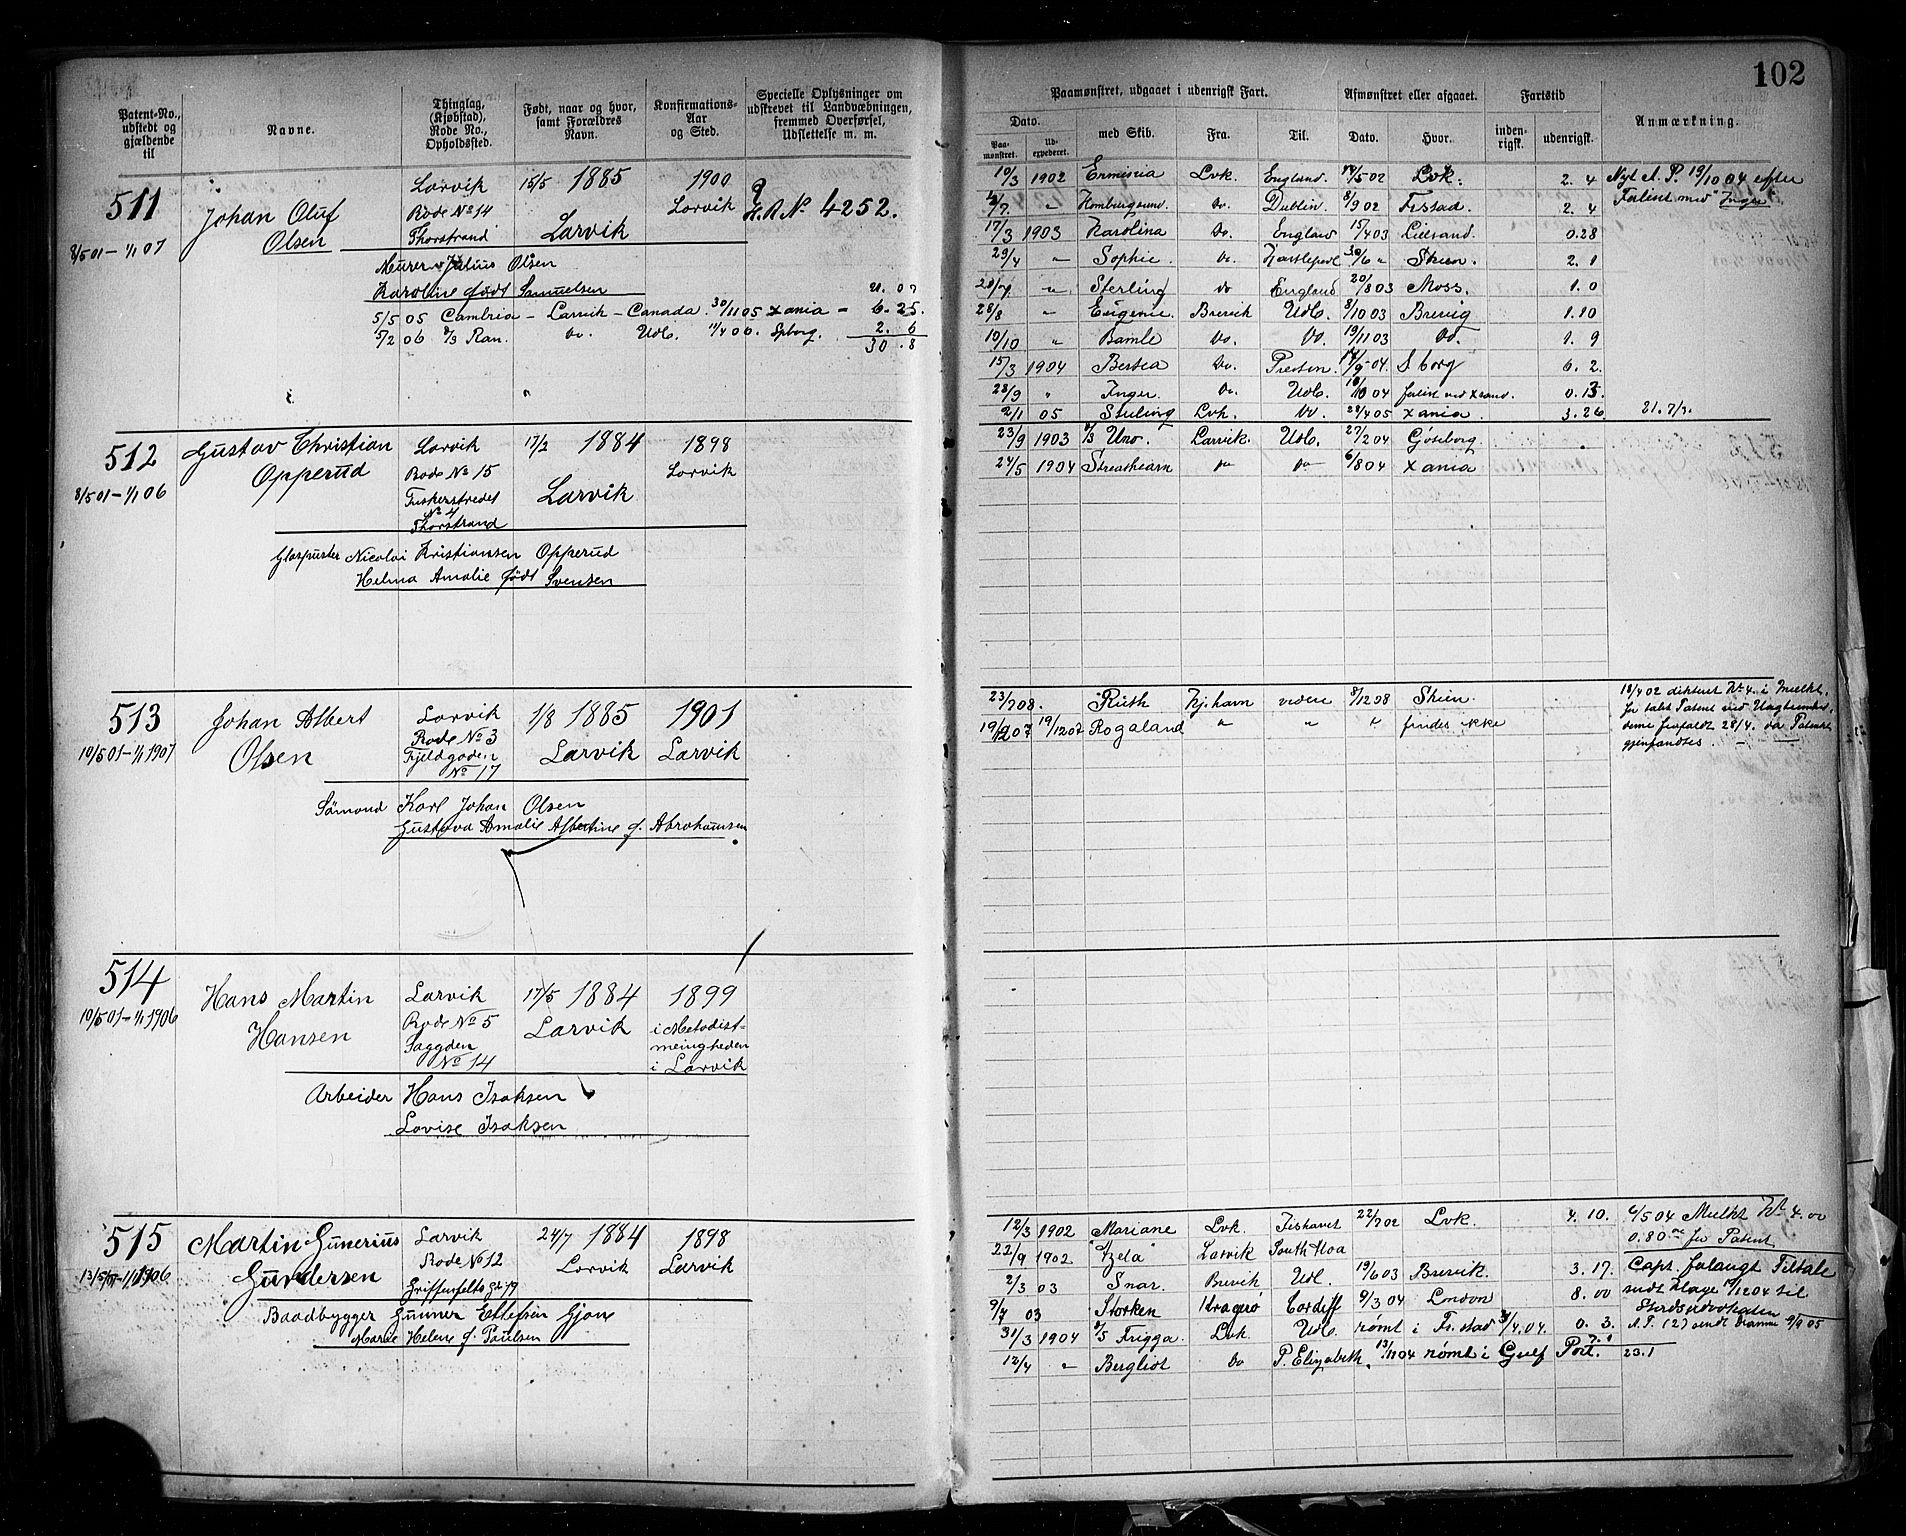 102
Patent-No., udstedt og gjældende til
Navne.
Thinglag, (Kjøbstad), Rode No., Opholdssted.
Født, naar og hvor, samt Forældres Navn.
Konfirmations-Aar og Sted.
Specielle Oplysninger om udskrevet til Landværbningen, fremmed Overførsel, Udslettelse m. m.
Paamønstret, udgaaet i udenrigsk Fart.
Afmønstret eller afgaaet.
Fartstid
Anmærkning.
Dato. Paa-mønstret. Ud-expederet.
med Skib. Fra. Til. Dato. Hvor. inden-rigsk. udenrigsk.
511
8/5 01 – 1/1 07
Johan Oluf
Olsen
Larvik
Rode No 14
Thorstrand
15/5 1885
Larvik
1900
Larvik
H.R. No 4252.
Murer Julius Olsen
Karoline født Samuelsen
5/5 05 Cambria – Larvik – Canada. 30/11 05 Xania – 6.25.
5/2 06 Ran. Do. Udl. Spborg. 2. 6
30.8
10/3 1902 Ermisia Lvk. England. 14/5 02 Lvk. 2. 4
Homborgsund. Do. Dublin. 8/9 02 Frstad. 2. 4
17/3 1903 Karolina Do. England 15/4 03 Lillesand. 0.28
29/4 " Sophie. Do. Hartlepool 30/6 " Skien. 2. 1
" Sterling Do England 20/8 03 Moss. 1. 0
28/8 " Eugenie. Brevik Udl. 8/10 03 Brevig 1.10
10/10 " Bamle Do. Do. 19/11 03 Do. 1. 9
15/3 1904 Bertha Do. Preston. 04. S borg 6. 2.
28/9 " Inger. Do. Udl. 04 forlist ved Xsand. 0.13.
2/1 05 Sterling Lvk. Do. 28/4 05 Xania. 3.26
Nyt A. P. 19/10 04 efter
Forlist med "Inger"
21. 7/3.
512
8/5 01 – 1/1 06
Gustav Christian
Opperud
Larvik
Rode No 15
Fiskerstredet
No 4
Thorstrand
17/2 1884
Larvik
1898
Larvik
Glaspuster Nicolai Kristiansen Opperud
Helma Amalie født Svensen
23/9 1903 Uno. Larvik. Udl. 27/2 04 Gøteborg
24/5 1904 Streatheam Do Do 6/8 04 Xania
513
10/5 01 – 1/1 1907
Johan Albert
Olsen
Larvik
Rode No 3
Fjeldgaden
No 17
1/8 1885
Larvik
1901
Larvik
Sømand Karl Johan Olsen
Gustava Amalie Albertine f. Abrahamsen
23/7 08. Ruth Kj.havn videre 8/12 08 Skien.
19/12 07 19/12 07 Rogaland " " " findes ikke
18/4 02 dikteret Kr 4. i Mulkt.
for tabt Patent ved Uagtsomhed,
denne frafaldt 28/4. da Patentet
gjenfandtes. –
514
10/5 01 – 1/1 1906
Hans Martin
Hansen
Larvik
Rode No 5
Saggden
No 14
17/5 1884
Larvik
1899
i Metodist-
meingheden
i Larvik
Arbeider Hans Isaksen
Lovise Isaksen
515
13/5 01 – 1/1 1906
Martin Gunerius
Gundersen
Larvik
Rode No 12
Griffenfelts Gd 19
24/7 1884
Larvik
1898
Larvik
Baadbygger Gunner Ellefsen Gjone
Marie Helene f. Paulsen
12/3 1902 Mariane Lvk. Fishavet 22/7 02 Lvk. 4. 10.
22/9 1902 "Zeta" Larvik South Moa
2/3 03 Snar. Brevik Udl. 19/6 03 Brevik. 3. 17.
9/7 03 Storken Kragerø Cardiff 9/3 04 London 8. 00
31/3 1904 Frigga. Lvk. Udl. rømt i Fr.stad 4.04. 0. 3.
12/4 " Bergliot Do P. Elizabeth. 04 rømt i Gulf Port.
23.1
4/5 04 Mulkt Kr 4.00
0.80 for Patent
Capt. forlangt Tiltale
sendt Klage 04 til
Statsadvokaten